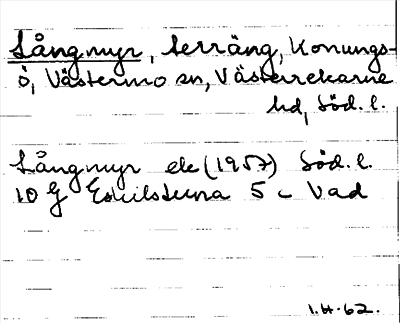 Långmyr, terräng, Konungs-
ö, Västermo sn, Västerrekarne
hd, Söd. l.
Långmyr ek (1957) Söd. l.
10 G Eskilstuna 5 c Vad
1.H.62.